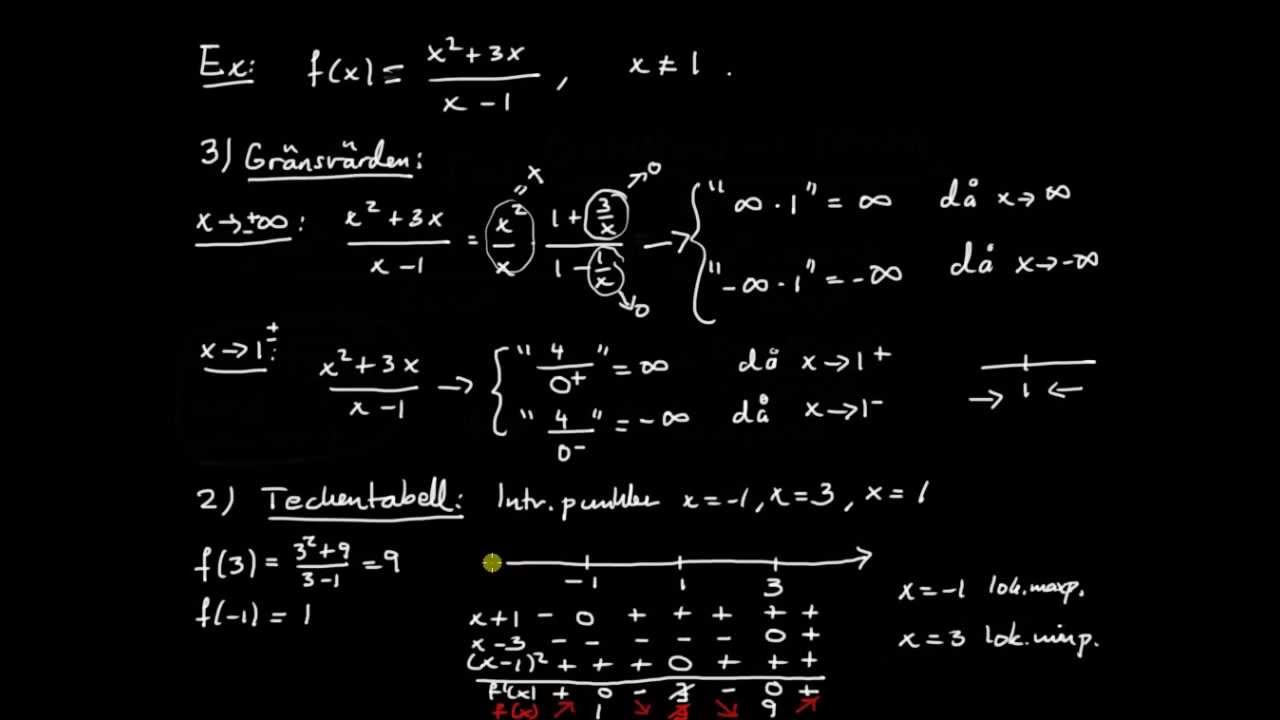 Ex: f(x) = (x² + 3x)/(x - 1), x ≠ 1.
3) Gränsvärden:
x → ±∞: (x² + 3x)/(x - 1) = x²/x · (1 + 3/x)/(1 - 1/x) → { "∞ · 1" = ∞ då x → ∞
"x
→ 0
→ 0
"-∞ · 1" = -∞ då x → -∞
x → 1±: (x² + 3x)/(x - 1) → { "4/0⁺" = ∞ då x → 1⁺
"4/0⁻" = -∞ då x → 1⁻
→ 1 ←
2) Teckentabell: Intr. punkter x = -1, x = 3, x = 1
f(3) = (3² + 9)/(3 - 1) = 9
f(-1) = 1
-1 1 3
x+1 - 0 + + + + +
x-3 - - - - - 0 +
(x-1)² + + + 0 + + +
f'(x) + 0 - - 0 +
f(x) ↗ 1 ↘ ↘ 9 ↗
x = -1 lok. maxp.
x = 3 lok. minp.